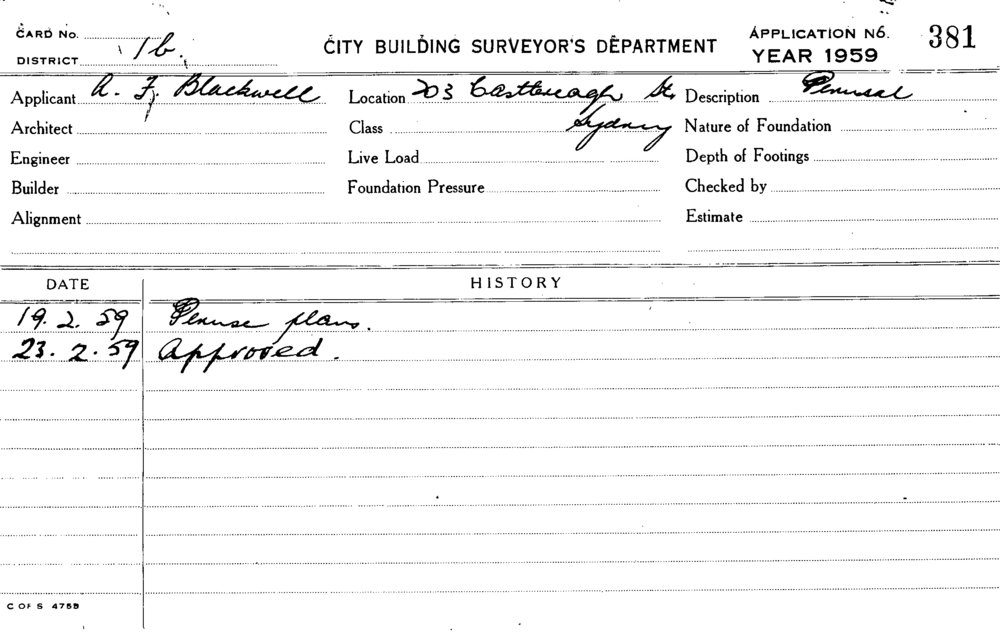 CARD No.
DISTRICT 1b.
CITY BUILDING SURVEYOR'S DEPARTMENT
APPLICATION No. 381
YEAR 1959
Applicant A. F. Blackwell Location 203 Castlereagh St. Description Perusal
Architect Class Sydney Nature of Foundation
Engineer Live Load Depth of Footings
Builder Foundation Pressure Checked by
Alignment Estimate
DATE HISTORY
19.2.59 Peruse plans.
23.2.59 Approved.
C OF S 475B